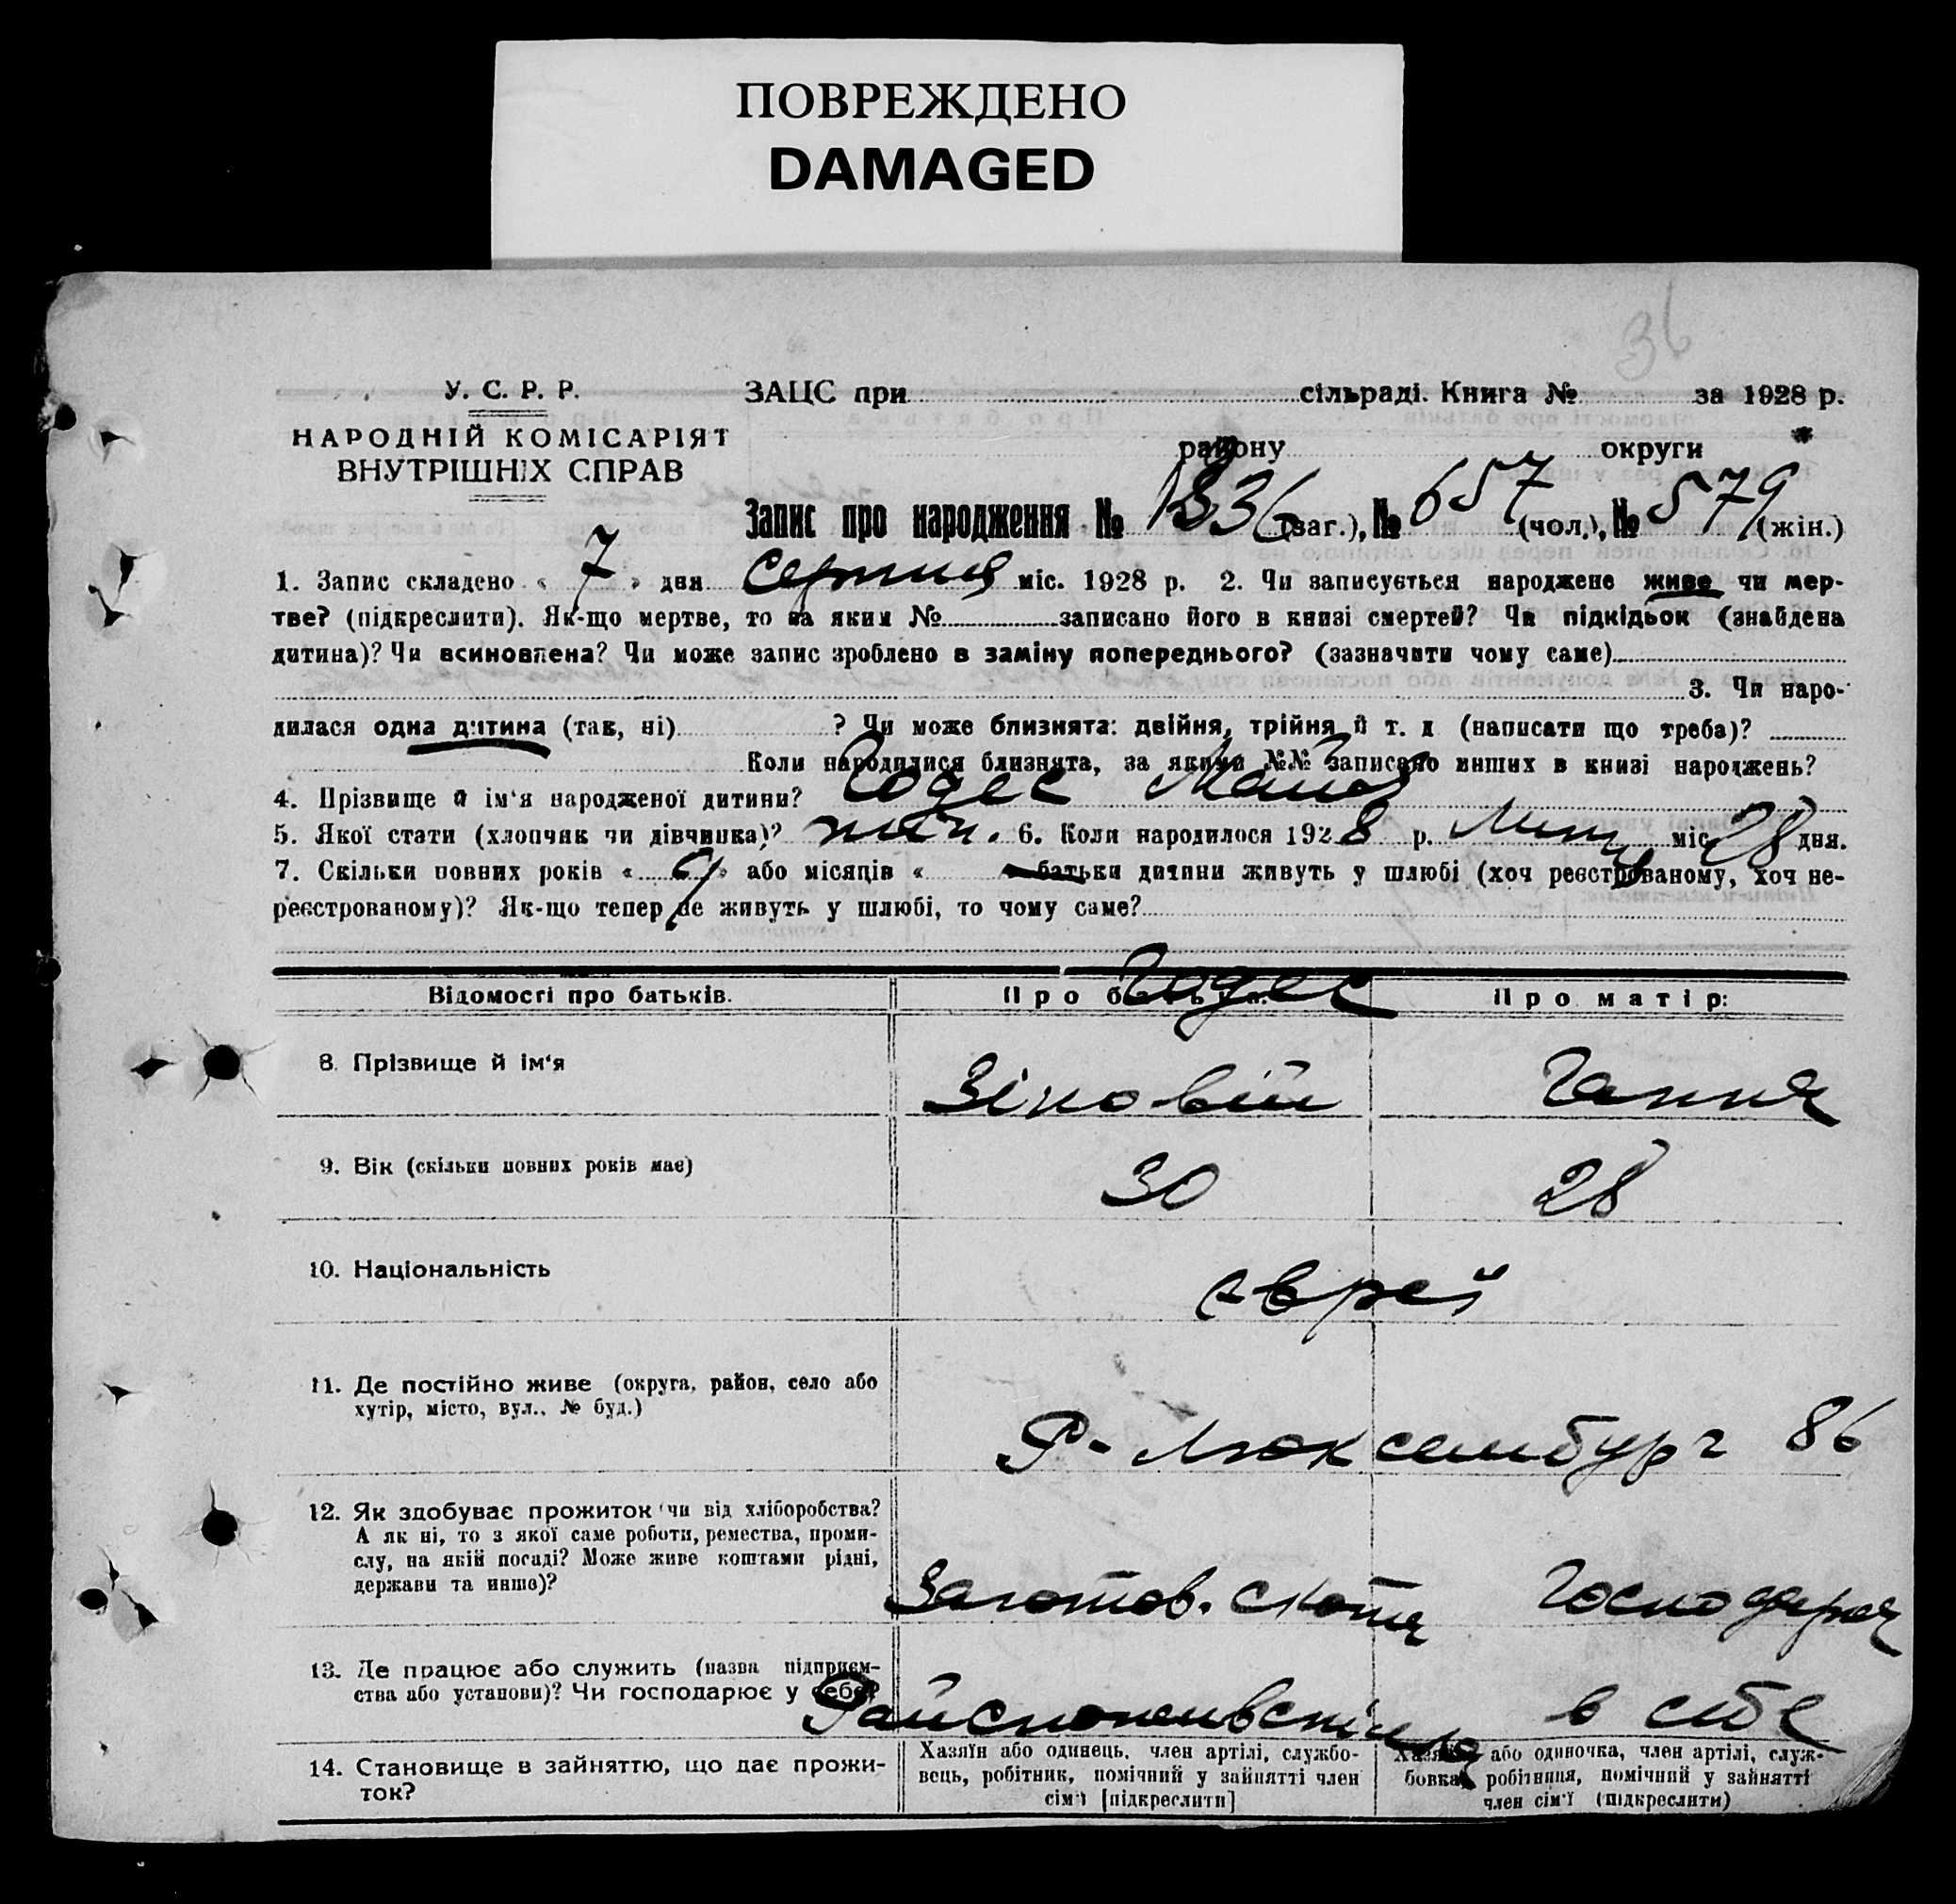 ПОВРЕЖДЕНО
DAMAGED
36
У. С. Р. Р.
НАРОДНІЙ КОМІСАРІЯТ
ВНУТРІШНІХ СПРАВ
ЗАЦС при сільраді. Книга № за 1928 р.
району округи
Запис про народження № 1236 (заг.), № 657 (чол.), № 579 (жін.)
1. Запис складено « 7 » дня серпня міс. 1928 р. 2. Чи записується народжене живе чи мер-
тве? (підкреслити). Як-що мертве, то за яким № записано його в книзі смертей? Чи підкідьок (знайдена
дитина)? Чи всиновлена? Чи може запис зроблено в заміну попереднього? (зазначити чому саме)
3. Чи наро-
дилася одна дитина (так, ні) ? Чи може близнята: двійня, трійня й т. д (написати що треба)?
Коли народилися близнята, за якими №№ записано инших в книзі народжень?
4. Прізвище й ім'я народженої дитини? Годес
5. Якої стати (хлопчик чи дівчинка)? 6. Коли народилося 1928 р. Липня міс 28 дня.
7. Скільки повних років « » або місяців « батьки дитини живуть у шлюбі (хоч реєстрованому, хоч не-
реєстрованому)? Як-що тепер не живуть у шлюбі, то чому саме?
Відомості про батьків. Про батька: Про матір:
Годес
8. Прізвище й ім'я Зіновій Ганна
9. Вік (скільки повних років має) 30 28
10. Національність єврей
11. Де постійно живе (округа, район, село або
хутір, місто, вул., № буд.)
Р- Люксембург 86
12. Як здобуває прожиток (чи від хліборобства?
А як ні, то з якої саме роботи, ремества, проми-
слу, на якій посаді? Може живе коштами рідні,
держави та инше)?
Заготов. скота Господарка
13. Де працює або служить (назва підприєм-
ства або установи)? Чи господарює у себе?
в себе
14. Становище в зайняттю, що дає прожи-
ток?
Хазяїн або одинець, член артілі, службо-
вець, робітник, помічний у зайнятті член
сім'ї [підкреслити]
Хазяйка або одиночка, член артілі, служ-
бовка, робітниця, помічний у зайнятті
член сім'ї (підкреслити)